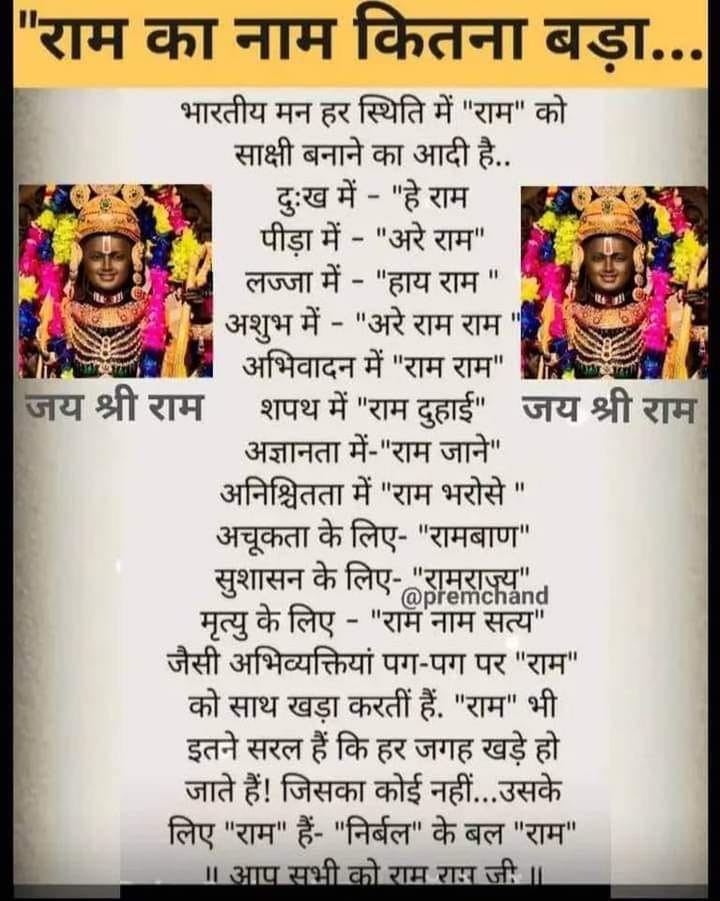 "राम का नाम कितना बड़ा...
भारतीय मन हर स्थिति में "राम" को
साक्षी बनाने का आदी है..
दुःख में - "हे राम
पीड़ा में - "अरे राम"
लज्जा में - "हाय राम "
अशुभ में - "अरे राम राम "
अभिवादन में "राम राम"
जय श्री राम
शपथ में "राम दुहाई"
जय श्री राम
अज्ञानता में-"राम जाने"
अनिश्चितता में "राम भरोसे "
अचूकता के लिए- "रामबाण"
सुशासन के लिए- "रामराज्य"
@premchand
मृत्यु के लिए - "राम नाम सत्य"
जैसी अभिव्यक्तियां पग-पग पर "राम"
को साथ खड़ा करतीं हैं. "राम" भी
इतने सरल हैं कि हर जगह खड़े हो
जाते हैं! जिसका कोई नहीं...उसके
लिए "राम" हैं- "निर्बल" के बल "राम"
॥ आप सभी को राम राम जी ॥